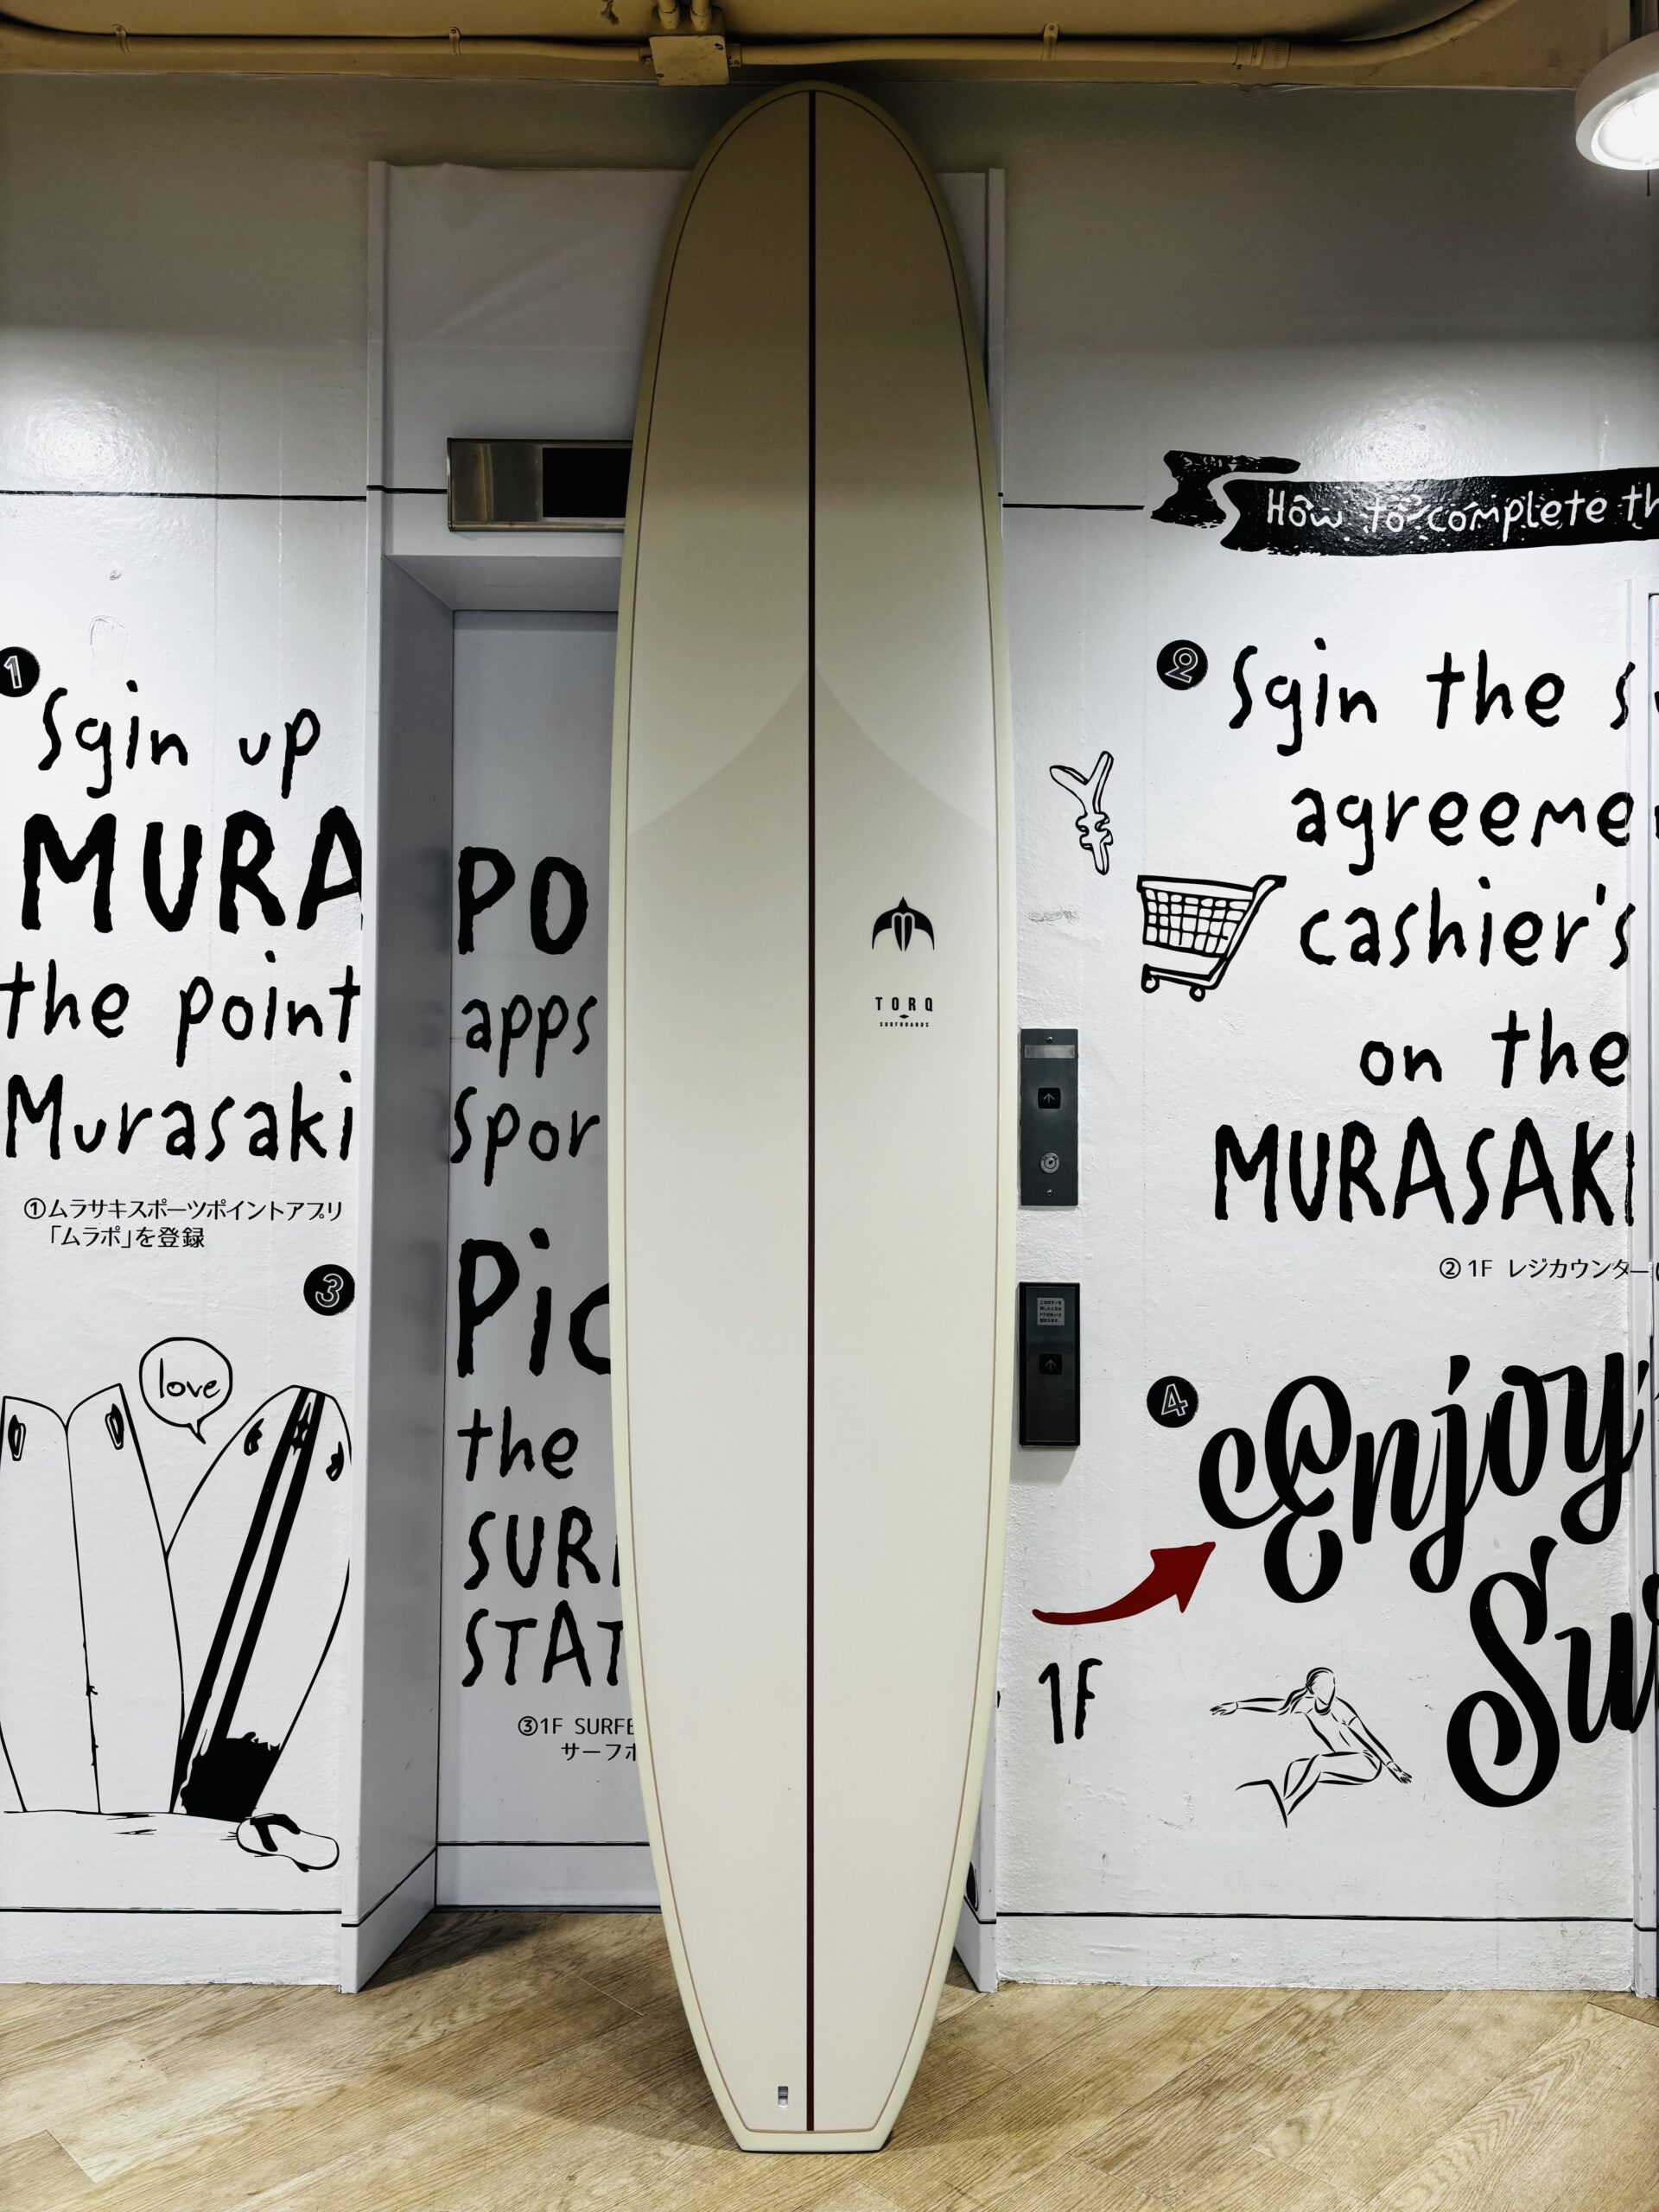 How to complete th
1
Sgin up
MURA
the point
Murasaki
①ムラサキスポーツポイントアプリ
「ムラポ」を登録
PO
apps
Spor
3
Pic
the
SUR
STAT
③1F SURFB
サーフボ
love
TORQ
SURFBOARDS
2
Sgin the s
agreeme
cashier's
on the
MURASAKI
②1F レジカウンター
¥
4
Enjoy
Su
1F